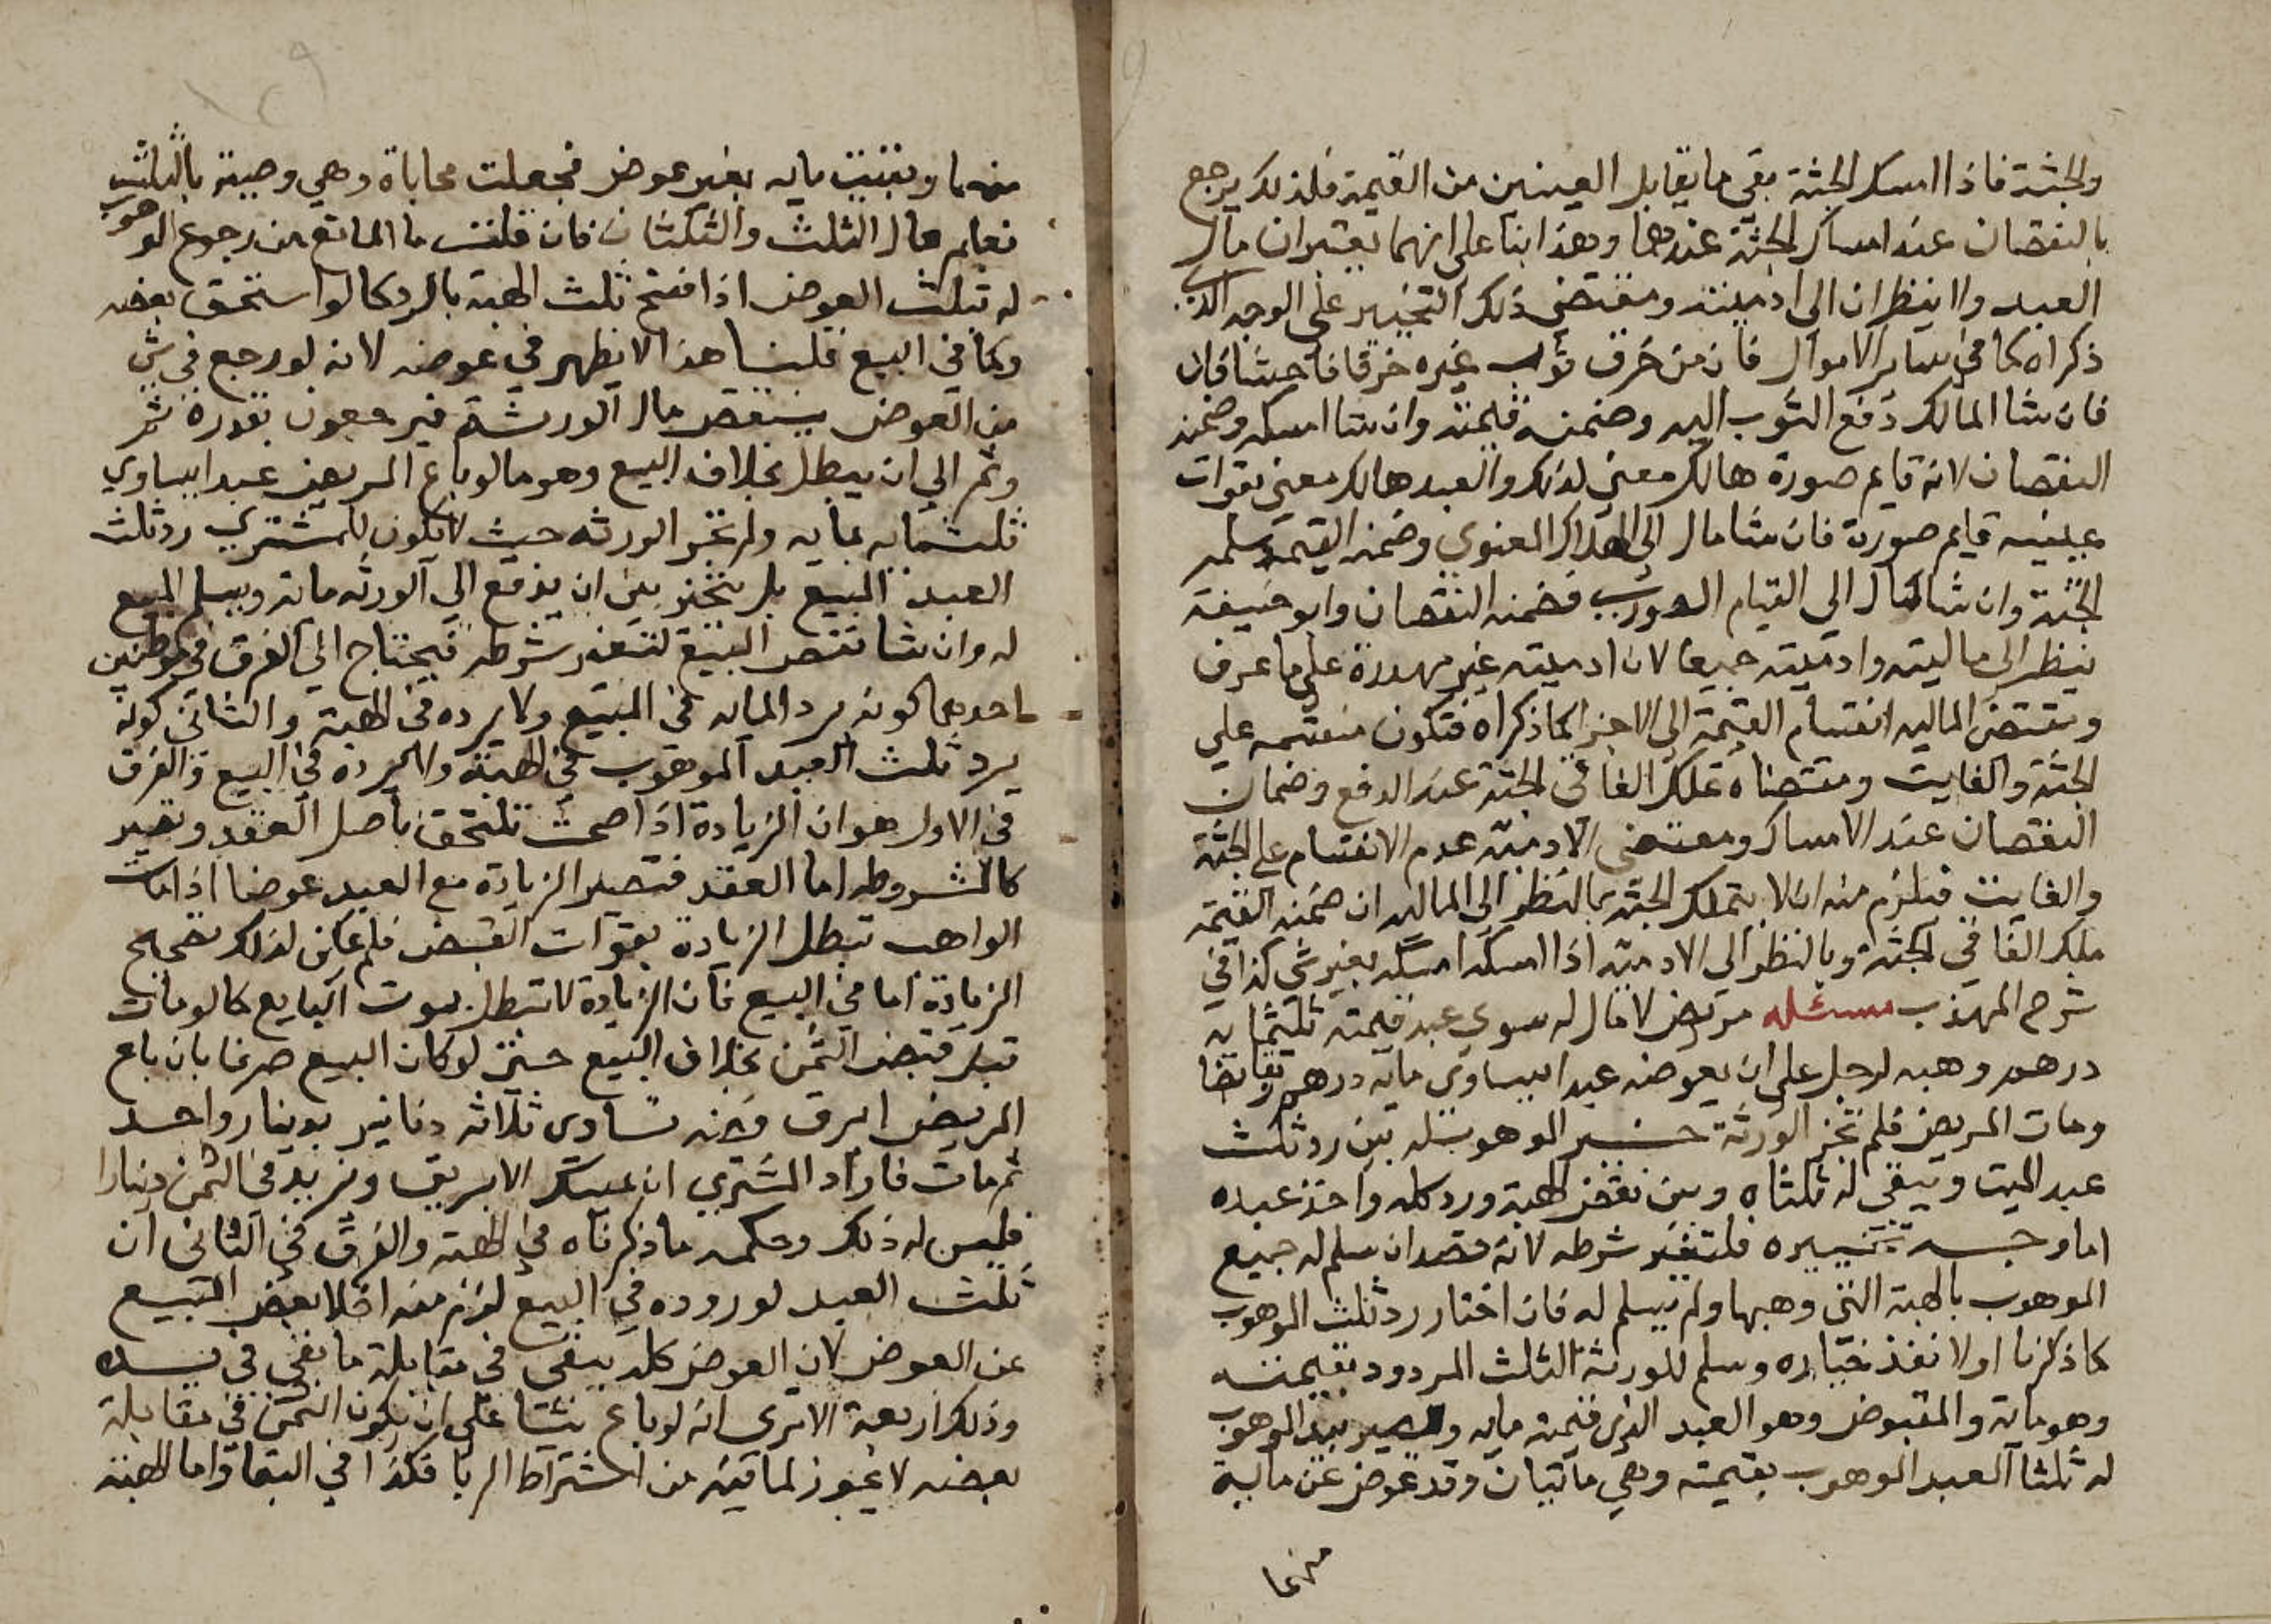 والجثة فاذا امسك الجثة بقي ما يقابل العينين من القيمة فلذلك يرجع
بالنقصان عند امساك الجثة عندهما وهذا بنا على انهما يعتبران مال
العبد ولا ينظران الى ادميته ومقتضى ذلك التخيير على الوجه الذي
ذكراه كما في ساير الاموال فان من خرق ثوب غيره خرقا فاحشا فان
فان شا المالك دفع الثوب اليه وضمنه قيمته وان شا امسكه وضمنه
النقصان لانه قايم صورة هالك معنى لذلك والعبد هالك معنى بفوات
عينيه قايم صورة فان شا مال الى الهلاك المعنوي وضمنه القيمة وسلمه
الجثة وان شا مال الى القيام الصوري فضمنه النقصان وابو حنيفة
ينظر الى ماليته وادميته جميعا لان ادميته غير مهدرة على ما عرف
ومقتضى الماليه انقسام القيمة الى الاجزا كما ذكراه فتكون منقسمه على
الجثة والفايت ومقتضاه تملك الفاقئ الجثة عند الدفع وضمان
النقصان عند الامساك ومقتضى الادميه عدم الانقسام على الجثة
والفايت فيلزم منه ان لا يتملك الجثة بالنظر الى الماليه ان ضمنه القيمة
ملك الفاقي الجثة وبالنظر الى الادميه اذا امسكه امسكه بغير شي كذا في
شرح المهذب مسئله مريض لا مال له سوي عبد قيمته ثلثمايه
درهم وهبه لرجل على ان يعوضه عبدا يساوي مايه درهم وتقابضا
ومات المريض فلم تجز الورثة خير الموهوب له بين رد ثلث
عبد الميت ويبقي له ثلثاه وبين نقض الهبة ورد كله واخذ عبده
اما وجه تخييره فلتغير شرطه لانه قصد ان سلم له جميع
الموهوب بالهبة التي وهبها ولم يسلم له فان اختار رد ثلث الموهوب
كما ذكرنا اولا نفذ ختياره وسلم للورثة الثلث المردود بقيمته
وهو ماية والمقبوض وهو العبد الذي قيمته مايه ويصير بيد الموهوب
له ثلثا العبد الموهوب بقيمته وهي مايتان وقد عوض عن ماية
منهما
منهما وبقيت مايه بغير عوض فجعلت محاباة وهي وصية بالثلث
فعلم مال الثلث والثلثان فان قلت ما المانع من رجوع الموهوب
له بثلث العوض اذا فسخ ثلث الهبة بالرد كما لو استحق بعضه
وكما في البيع قلنا هذا لا يظهر في عوضه لانه لو رجع في شي
من العوض ينتقص مال الورثة فيرجعون بقدره ثم
وثم الي ان يبطل بخلاف البيع وهو ما لو باع المريض عبدا يساوي
ثلثمايه بمايه ولم تجز الورثه حيث لا يكون للمشتري رد ثلث
العبد المبيع بل يتخير بين ان يدفع الي الورثه ماية ويسلم المبيع
له وان شا نقض البيع لتغير شرطه فيحتاج الي الفرق في موطنين
احدهما كونه يرد المايه في المبيع ولا يرده في الهبة والثاني كونه
يرد ثلث العبد الموهوب في الهبة ولا يرده في البيع والفرق
في الاول هو ان الزيادة اذا صحت تلتحق باصل العقد وتصير
كالمشروطه اما العقد فتصير الزيادة مع العبد عوضا اذا مات
الواهب تبطل الزيادة بفوات القبض فلم يمكن لذلك تصحيح
الزيادة اما في البيع فان الزيادة لا تبطل بموت البايع كما لو مات
قبل قبض الثمن بخلاف البيع حتى لو كان البيع صرفا بان باع
المريض ابرق فضه تساوي ثلاثه دنانير بدينار واحد
ثم مات فاراد المشتري ان يمسك الابريق ويزيد في الثمن دينارا
فليس له ذلك وحكمه ما ذكرناه في الهبة والفرق في الثاني ان
ثلث العبد لو رده في البيع لزم منه اخلا بعض المبيع
عن العوض لان العوض كله يبقي في مقابلة ما بقي في يده
وذلك الا تري انه لو باع شيئا على ان يكون الثمن في مقابلة
بعضه لا يجوز لما فيه من اشتراط الربا فكذا في البقا واما الهبة